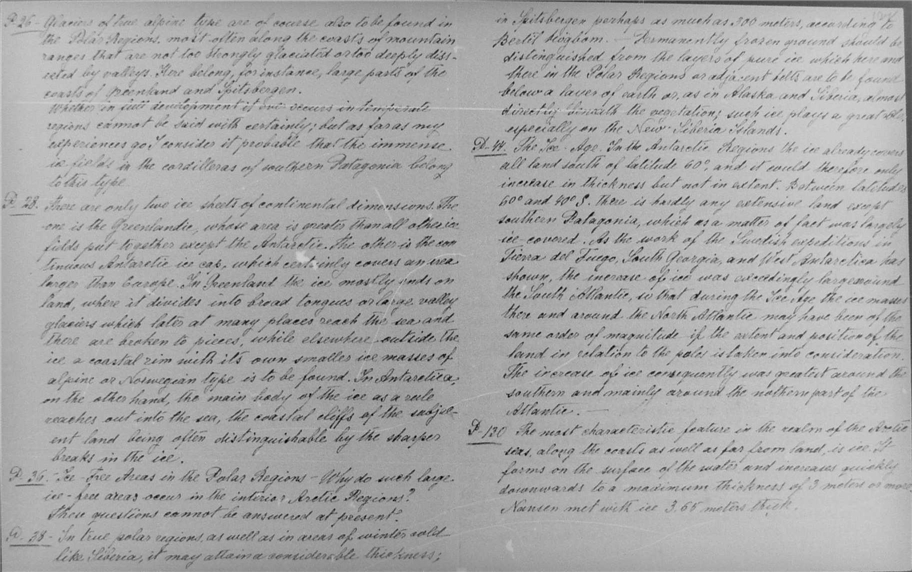 P. 26 - Glaciers of true alpine type are of course also to be found in
the Polar Regions, most often along the coasts of mountain
ranges that are not too strongly glaciated or too deeply diss-
ected by valleys. Here belong, for instance, large parts of the
coasts of Greenland and Spitsbergen.
Whether in full development it ever occurs in temperate
regions cannot be said with certainly; but as far as my
experiences go I consider it probable that the immense
ice fields in the cordilleras of southern Patagonia belong
to this type.
P. 28. There are only two ice sheets of continental dimensions. The
one is the Greenlandic, whose area is greater than all other ice
fields put together except the Antarctic. The other is the con
tinuous Antarctic ice cap, which certainly covers an area
larger than Europe. In Greenland the ice mostly ends on
land, where it divides into broad tongues or large valley
glaciers which later at many places reach the sea and
there are broken to pieces, while elsewhere outside the
ice a coastal rim with its own smaller ice masses of
alpine or Norwegian type is to be found. In Antarctica,
on the other hand, the main body of the ice as a rule
reaches out into the sea, the coastal cliffs of the subjac-
ent land being often distinguishable by the sharper
breaks in the ice.
P. 36. Ice-Free Areas in the Polar Regions - Why do such large
ice-free areas occur in the interior Arctic Regions?
These questions cannot be answered at present.
P. 38 - In true polar regions, as well as in areas of winter cold
like Siberia, it may attain a considerable thickness;
in Spitsbergen perhaps as much as 300 meters, according to
Bertil Högbom. — Permanently frozen ground should be
distinguished from the layers of pure ice which here and
there in the Polar Regions or adjacent belts are to be found
below a layer of earth or, as in Alaska and Siberia, almost
directly beneath the vegetation; such ice plays a great rôle,
especially on the New Siberia Islands.
P. 44. The Ice-Age. In the Antarctic Regions the ice already covers
all land south of latitude 60° and it could therefore only
increase in thickness but not in extent. Between latitudes
60° and 40° S. there is hardly any extensive land except
southern Patagonia, which as a matter of fact was largely
ice-covered. As the work of the Swedish expeditions in
Tierra del Fuego, South Georgia, and West Antarctica has
shown, the increase of ice was exceedingly large around
the South Atlantic, so that during the Ice Age the ice masses
there and around the North Atlantic may have been of the
same order of magnitude if the extent and position of the
land in relation to the poles is taken into consideration.
The increase of ice consequently was greatest around the
southern and mainly around the nothern part of the
Atlantic. —
P. 130 The most characteristic feature in the realm of the Arctic
seas, along the coasts as well as far from land, is ice. It
forms on the surface of the water and increases quickly
downwards to a maximum thickness of 3 meters or more.
Nansen met with ice 3.65 meters thick.